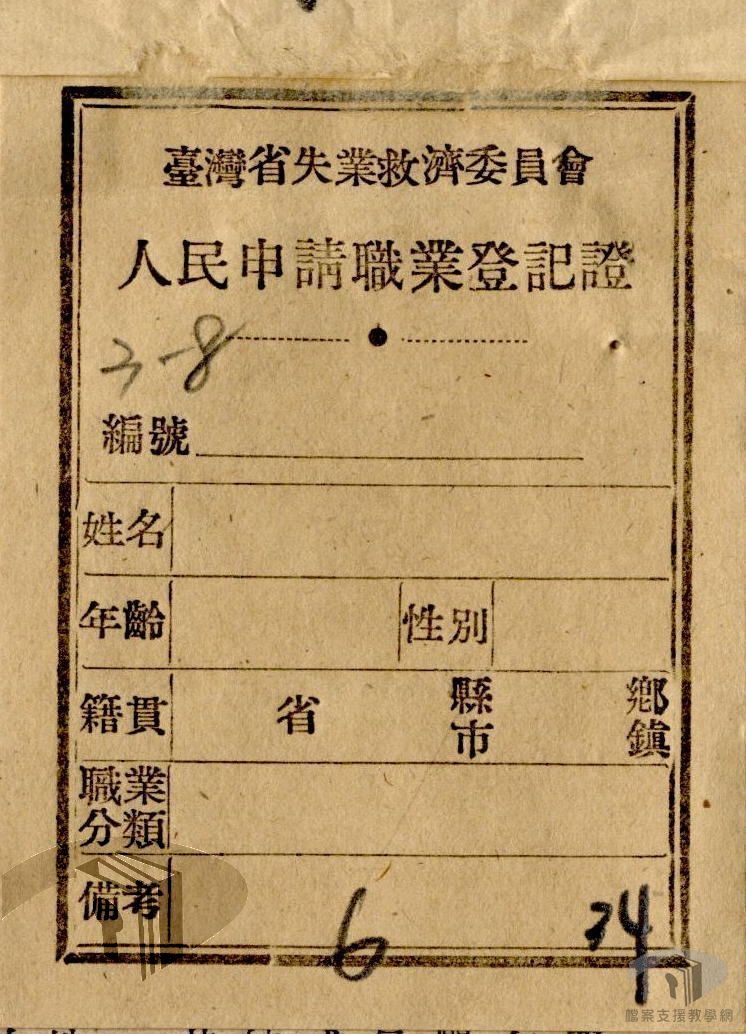 臺灣省失業救濟委員會
人民申請職業登記證
3-8
編號
姓名
年齡 性別
籍貫 省 縣市 鄉鎮
職業分類
備考
6 34
檔案支援教學網